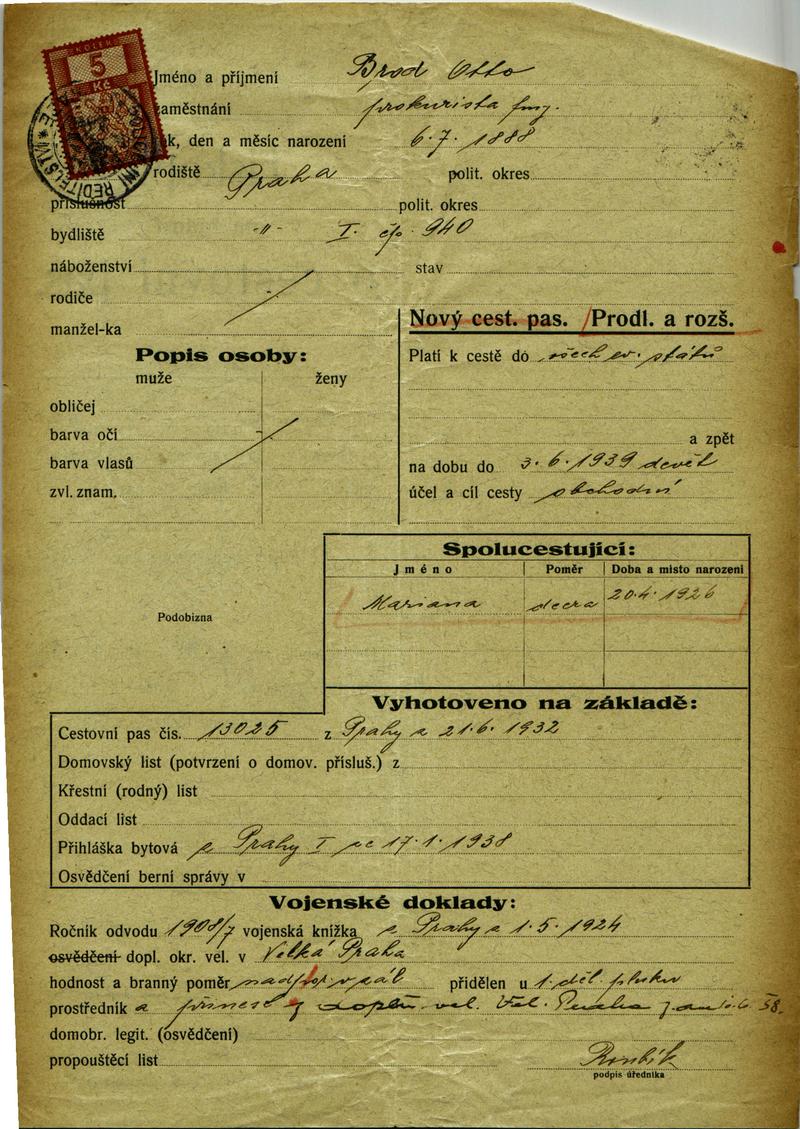 KOLEK
5
Kč
Jméno a příjmení Brod Otto
zaměstnání prokurista
k, den a měsíc narození 6.7.1888
rodiště Praha polit. okres
příslušnost polit. okres
bydliště -"- I. čp. 940
náboženství stav
rodiče
manžel-ka
Nový cest. pas. / Prodl. a rozš.
Popis osoby:
muže ženy
obličej
barva očí
barva vlasů
zvl. znam.
Platí k cestě do všech ev. států
a zpět
na dobu do 3.6.1939 devět
účel a cíl cesty obchodní
Spolucestující:
Jméno Poměr Doba a místo narození
Mariana dcera 20.4.1926
Podobizna
Vyhotoveno na základě:
Cestovní pas čís. 13025 z Prahy z 21.6.1932
Domovský list (potvrzení o domov. přísluš.) z
Křestní (rodný) list
Oddací list
Přihláška bytová z Prahy I ze 17.1.1938
Osvědčení berní správy v
Vojenské doklady:
Ročník odvodu 1908/7 vojenská knížka z Prahy z 1.5.1924
osvědčení dopl. okr. vel. v Velká Praha
hodnost a branný poměr v zál přidělen u 1. děl. pluku
prostředník a vel. Vel. Praha
domobr. legit. (osvědčení)
propouštěcí list
podpis úředníka